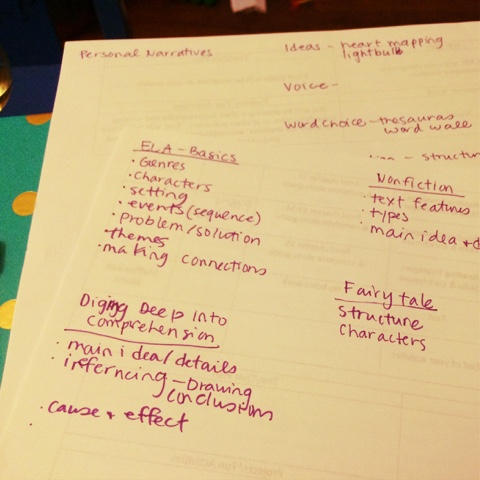 Personal Narratives
Ideas - heart mapping
lightbulb
Voice -
Word choice - thesauras
word wall
- structur
ELA - Basics
· Genres
· Characters
· setting
· events (sequence)
· Problem/solution
· themes
· making connections
Nonfiction
· text features
· types
· main idea + d
Fairy tale
Structure
Characters
Diging Deep into
comprehension
· main idea/details
· inferncing - Drawing
conclusions
· cause + effect
·